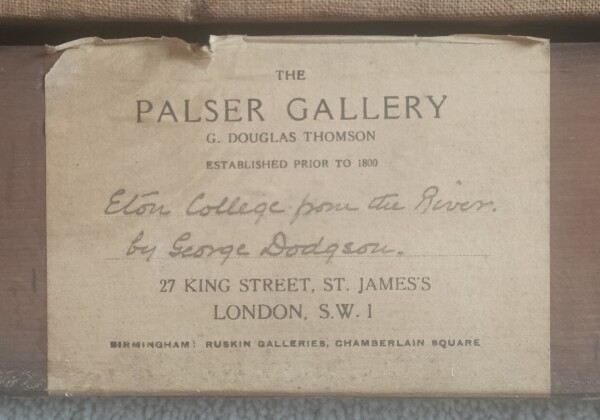 THE
PALSER GALLERY
G. DOUGLAS THOMSON
ESTABLISHED PRIOR TO 1800
Eton College from the River.
by George Dodgson.
27 KING STREET, ST. JAMES'S
LONDON, S.W. 1
BIRMINGHAM: RUSKIN GALLERIES, CHAMBERLAIN SQUARE